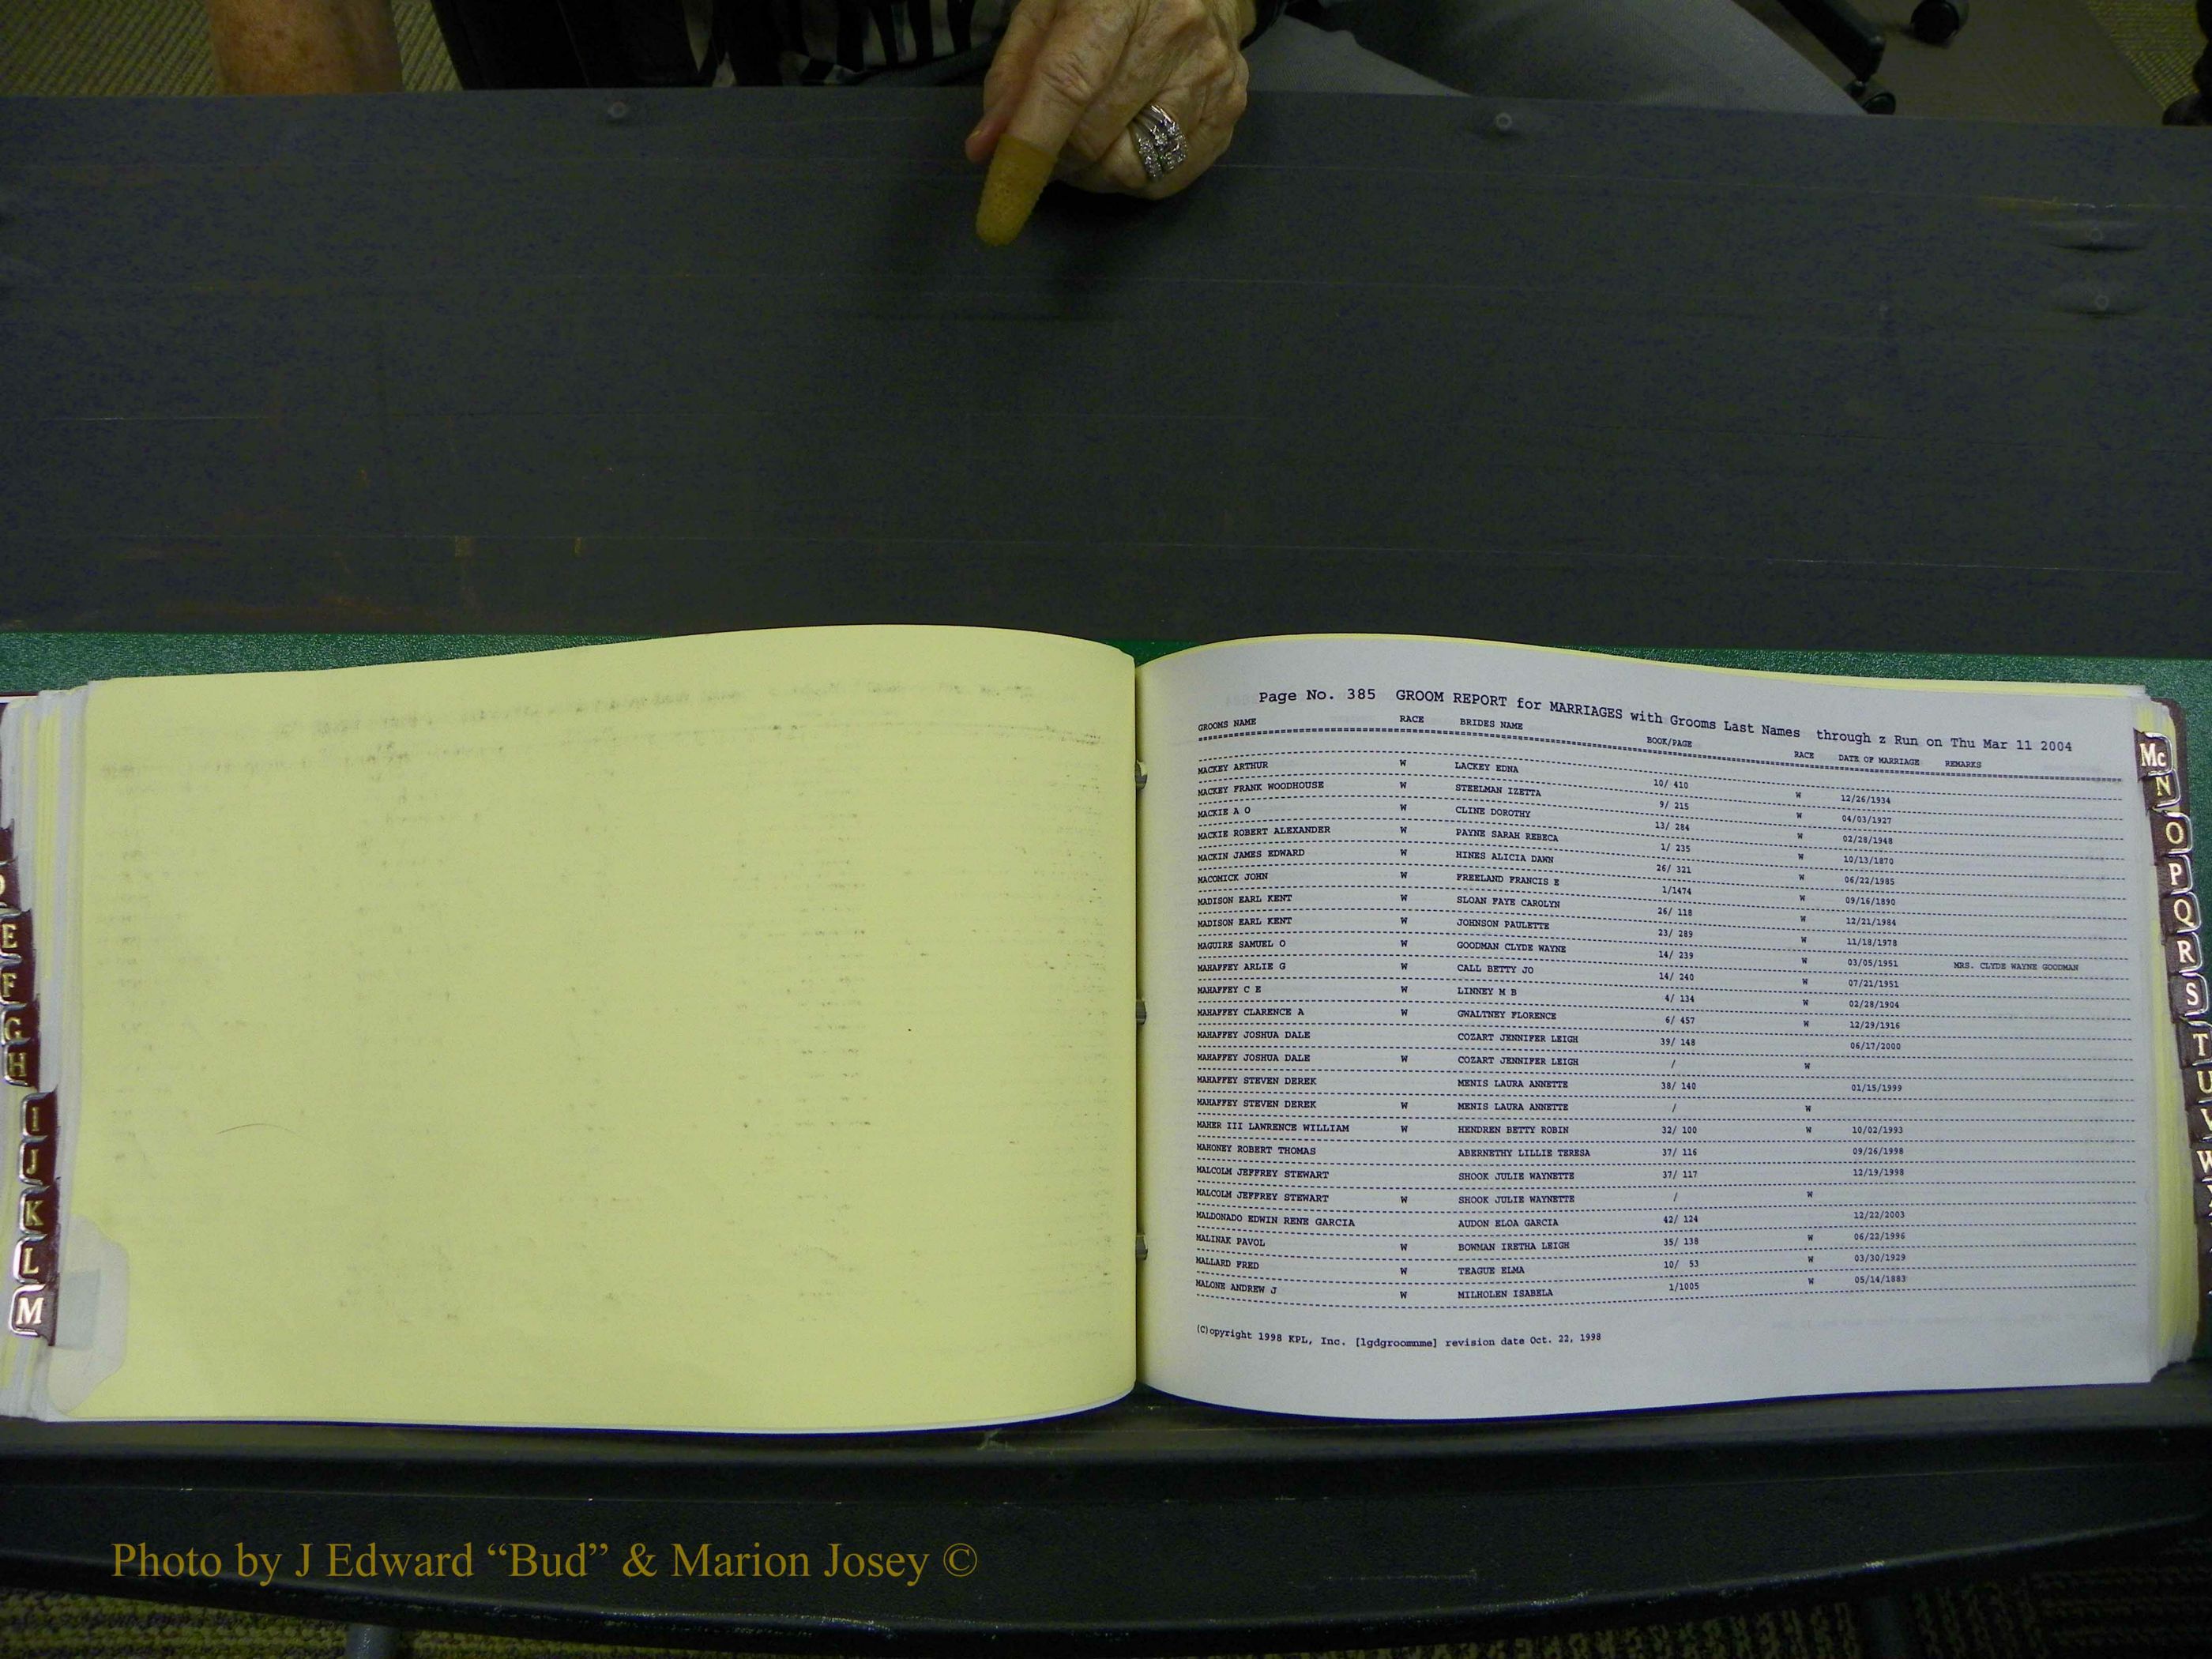 Page No. 385 GROOM REPORT for MARRIAGES with Grooms Last Names through z Run on Thu Mar 11 2004
GROOMS NAME RACE BRIDES NAME BOOK/PAGE RACE DATE OF MARRIAGE REMARKS
MACKEY ARTHUR W LACKEY EDNA 10/ 410 W 12/26/1934
MACKEY FRANK WOODHOUSE W STEELMAN IZETTA 9/ 215 W 04/03/1927
MACKIE A O W CLINE DOROTHY 13/ 284 W 02/28/1948
MACKIE ROBERT ALEXANDER W PAYNE SARAH REBECA 1/ 235 W 10/13/1870
MACKIN JAMES EDWARD W HINES ALICIA DAWN 26/ 321 W 06/22/1985
MACOMICK JOHN W FREELAND FRANCIS E 1/1474 W 09/16/1890
MADISON EARL KENT W SLOAN FAYE CAROLYN 26/ 118 W 12/21/1984
MADISON EARL KENT W JOHNSON PAULETTE 23/ 289 W 11/18/1978
MAGUIRE SAMUEL O W GOODMAN CLYDE WAYNE 14/ 239 W 03/05/1951 MRS. CLYDE WAYNE GOODMAN
MAHAFFEY ARLIE G W CALL BETTY JO 14/ 240 W 07/21/1951
MAHAFFEY C E W LINNEY M B 4/ 134 W 02/28/1904
MAHAFFEY CLARENCE A W GWALTNEY FLORENCE 6/ 457 W 12/29/1916
MAHAFFEY JOSHUA DALE COZART JENNIFER LEIGH 39/ 148 06/17/2000
MAHAFFEY JOSHUA DALE W COZART JENNIFER LEIGH / W
MAHAFFEY STEVEN DEREK MENIS LAURA ANNETTE 38/ 140 01/15/1999
MAHAFFEY STEVEN DEREK W MENIS LAURA ANNETTE / W
MAHER III LAWRENCE WILLIAM W HENDREN BETTY ROBIN 32/ 100 W 10/02/1993
MAHONEY ROBERT THOMAS ABERNETHY LILLIE TERESA 37/ 116 09/26/1998
MALCOLM JEFFREY STEWART SHOOK JULIE WAYNETTE 37/ 117 12/19/1998
MALCOLM JEFFREY STEWART W SHOOK JULIE WAYNETTE / W
MALDONADO EDWIN RENE GARCIA AUDON ELOA GARCIA 42/ 124 12/22/2003
MALINAK PAVOL W BOWMAN IRETHA LEIGH 35/ 138 W 06/22/1996
MALLARD FRED W TEAGUE ELMA 10/ 53 W 03/30/1929
MALONE ANDREW J W MILHOLEN ISABELA 1/1005 W 05/14/1883
(C)opyright 1998 KPL, Inc. [lgdgroomnme] revision date Oct. 22, 1998
E
F
G
H
I
J
K
L
M
Mc
N
O
P
Q
R
S
T
U
V
W
Photo by J Edward “Bud” & Marion Josey ©